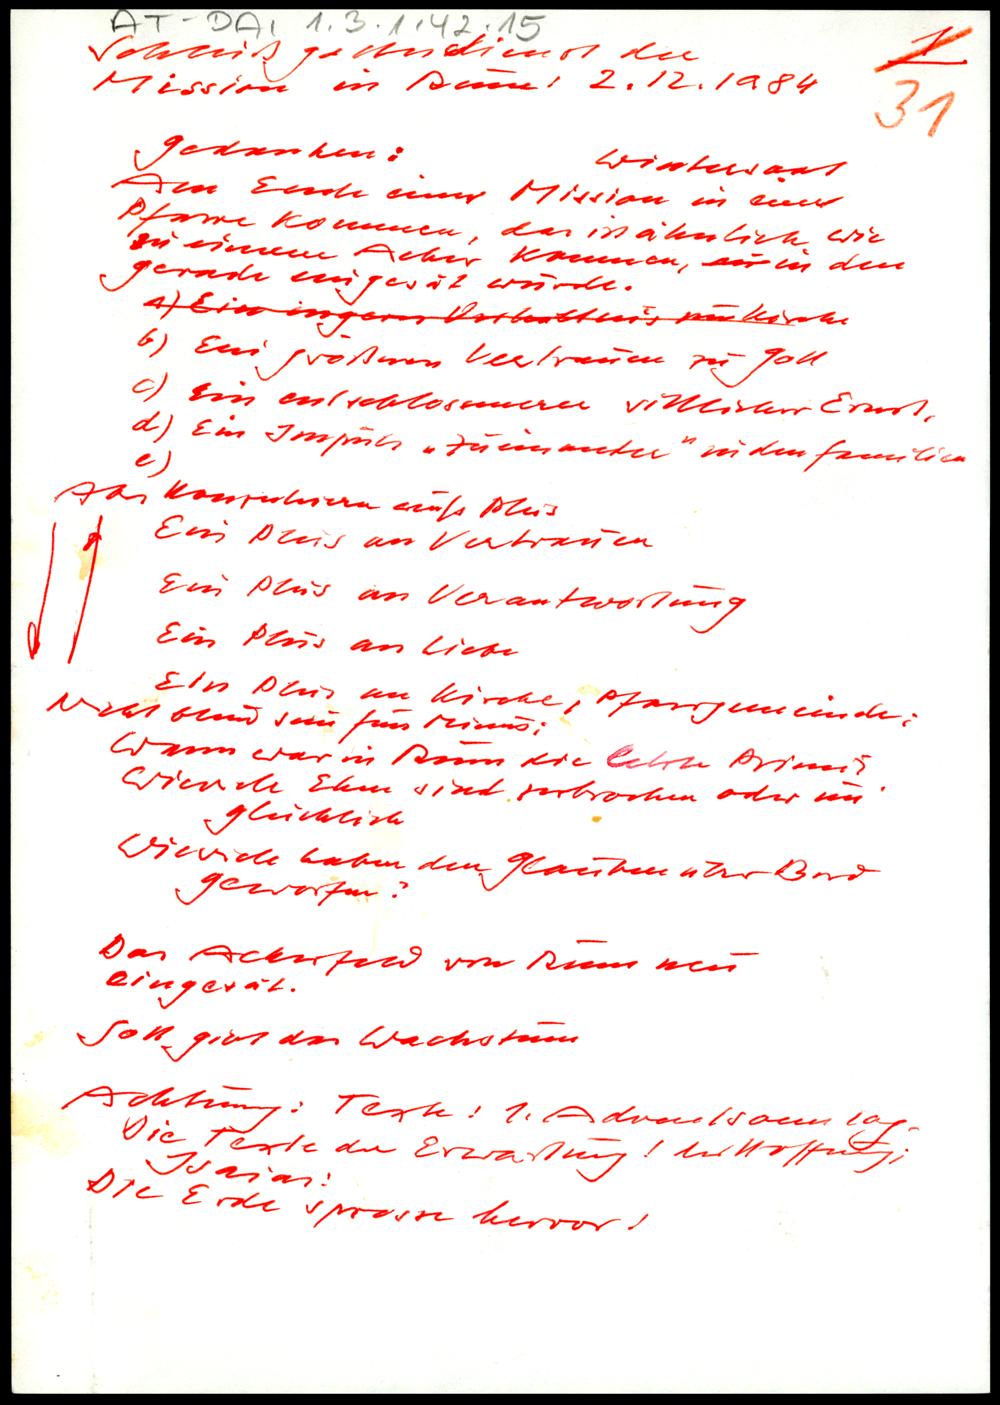 AT-DAI 1.3.1.42.15
1
31
Schlußgottesdienst der
Mission in Rum! 2.12.1984
Gedanken:
Wintersaat
Am Ende einer Mission in eine
Pfarre kommen, das ist ähnlich wie
zu einem Acker kommen, in den
gerade eingesät wurde.
a) Ein engeres Verhältnis zur Kirche
b) Ein größeres Vertrauen zu Gott
c) Ein entschlossenerer sittlicher Ernst,
d) Ein Impuls „Zueinander" in den Familien
e)
Das aufs Plus
Ein Plus an Vertrauen
Ein Plus an Verantwortung
Ein Plus an Liebe
Ein Plus an Kirche, Pfarrgemeinde;
Nicht blind sein fürs Minus:
Wann war in Rum die letzte Primiz
Wieviele Ehen sind zerbrochen oder un
glücklich
Wieviele haben den Glauben über Bord
geworfen?
Das Ackerfeld von Rum neu
eingesät.
Gott gibt das Wachstum
Achtung: Texte! 1. Adventsonntag.
Die Texte der Erwartung! der Hoffnung;
Isaias:
Die Erde sprosse hervor!